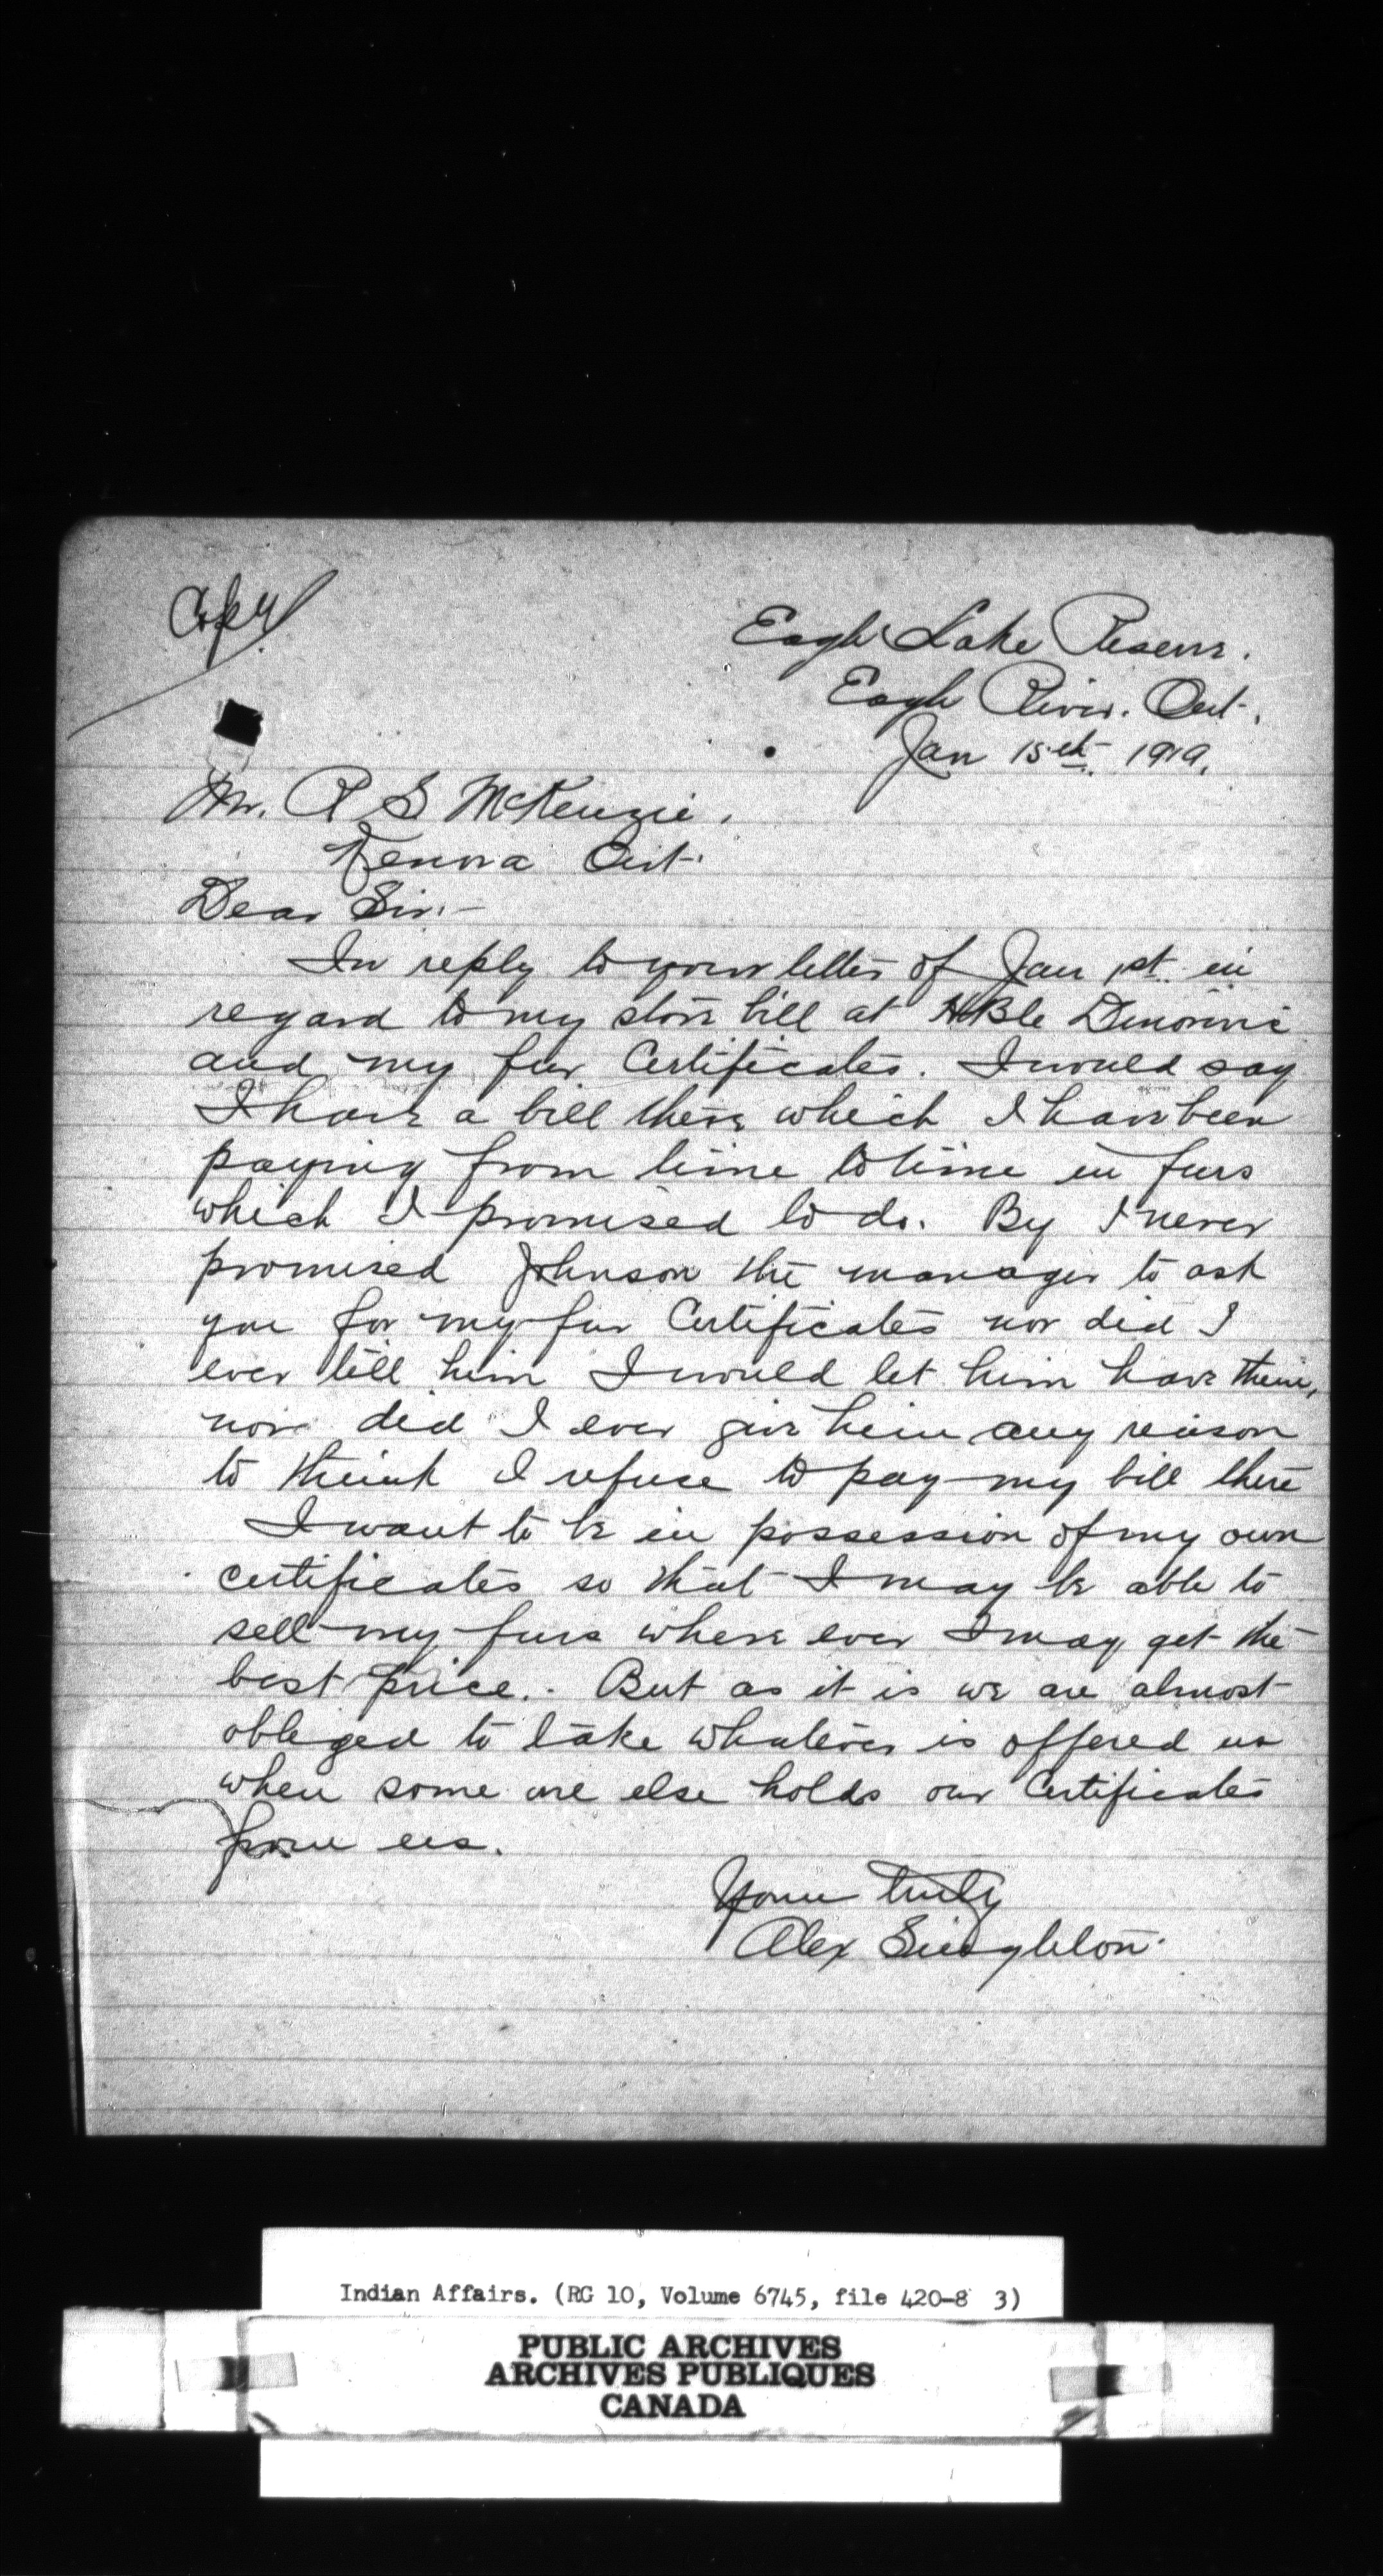 Copy
Eagle Lake Reserve.
Eagle River. Ont.
Jan 15th 1919.
Mr. R S McKenzie.
Kenora Ont.
Dear Sir:-
In reply to your letter of Jan 1st in
regard to my store bill at HBCo Dinorwic
and my fur Certificates. I would say
I have a bill there which I have been
paying from time to time in furs
which I promised to do. By I never
promised Johnson the manager to ask
you for my fur Certificates nor did I
ever tell him I would let him have them,
nor did I ever give him any reason
to think I refuse to pay my bill there
I want to be in possession of my own
certificates so that I may be able to
sell my furs where ever I may get the
best price. But as it is we are almost
obliged to take whatever is offered us
when some one else holds our Certificates
from us.
Yours truly
Alex Singleton.
Indian Affairs. (RG 10, Volume 6745, file 420-8 3)
PUBLIC ARCHIVES
ARCHIVES PUBLIQUES
CANADA